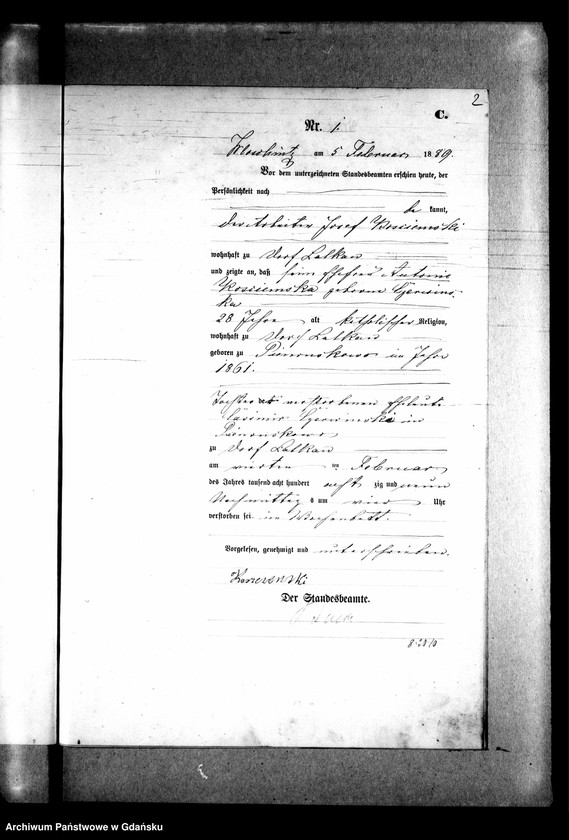 2
C.
Nr. 1.
am 5 Februar 1889.
Vor dem unterzeichneten Standesbeamten erschien heute, der
Persönlichkeit nach
be kannt,
der Arbeiter Josef Kosciemski
wohnhaft zu Dorf Latkau
und zeigte an, daß seine Ehefrau Antonie
Kosciemska geborene Czerwins-
ka
28 Jahre alt katholischer Religion,
wohnhaft zu Dorf Latkau
geboren zu im Jahre
1861.
Tochter der verstorbenen Eheleute
Casimir Czerwinski in
zu Dorf Latkau
am vierten ten Februar
des Jahres tausend acht hundert acht zig und neun
Nachmittag s um vier Uhr
verstorben sei im Wochenbett.
Vorgelesen, genehmigt und unterschrieben.
Der Standesbeamte.
Archiwum Państwowe w Gdańsku